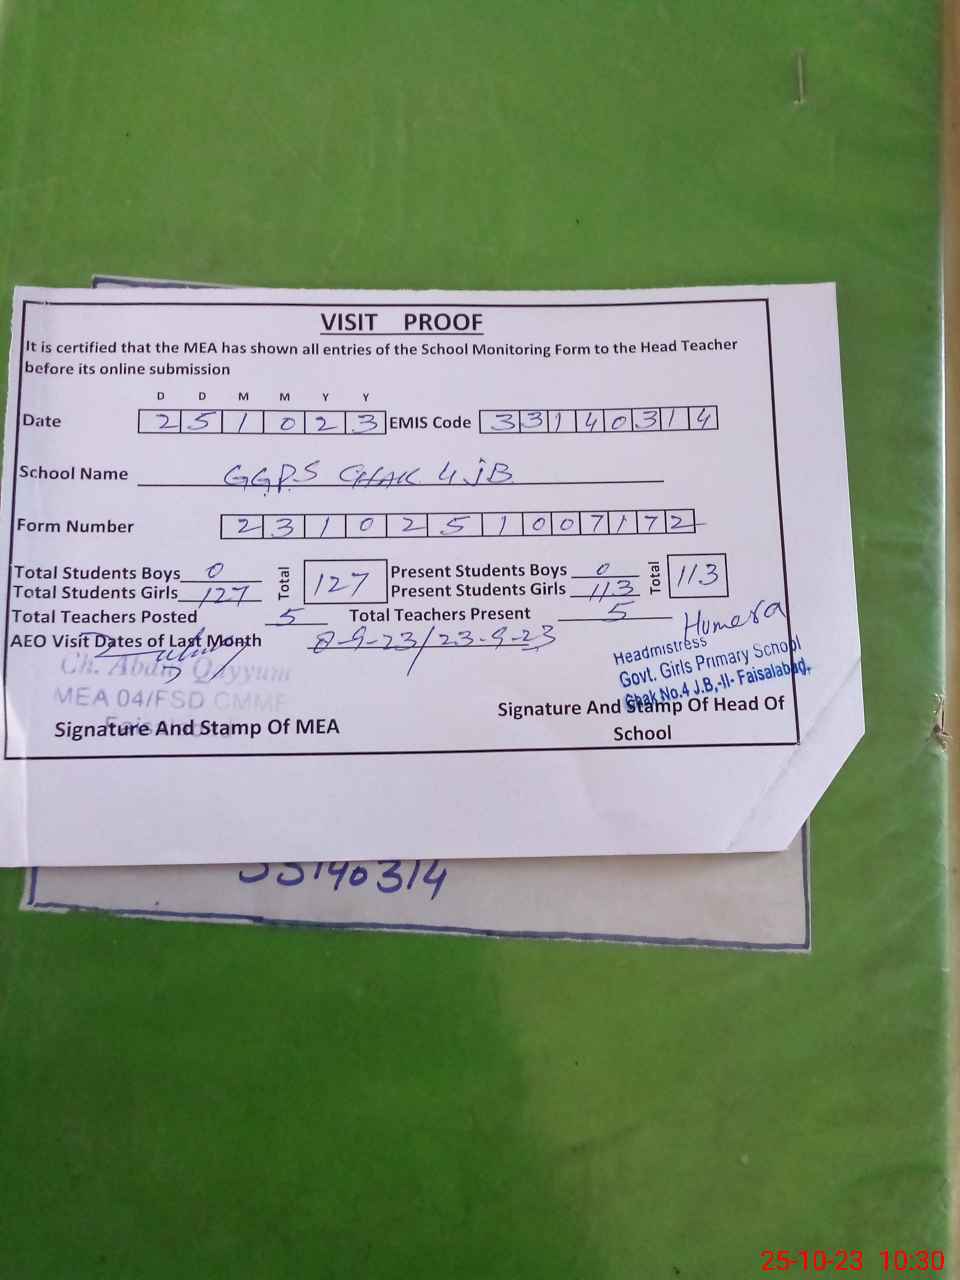 VISIT PROOF
It is certified that the MEA has shown all entries of the School Monitoring Form to the Head Teacher
before its online submission
D D M M Y Y
Date 2 5 1 0 2 3 EMIS Code 3 3 1 4 0 3 1 4
School Name GGPS CHAK 4 JB
Form Number 2 3 1 0 2 5 1 0 0 7 1 7 2
Total Students Boys 0 Total 127 Present Students Boys 0 Total 113
Total Students Girls 127 Present Students Girls 113
Total Teachers Posted 5 Total Teachers Present 5
AEO Visit Dates of Last Month 8-9-23/23-9-23
Humera
Headmistress
Govt. Girls Primary School
Chak No.4 J.B,-II- Faisalabad.
Ch. Qayyum
MEA 04/FSD CMMF
Signature And Stamp Of MEA
Signature And Stamp Of Head Of
School
33140314
25-10-23 10:30